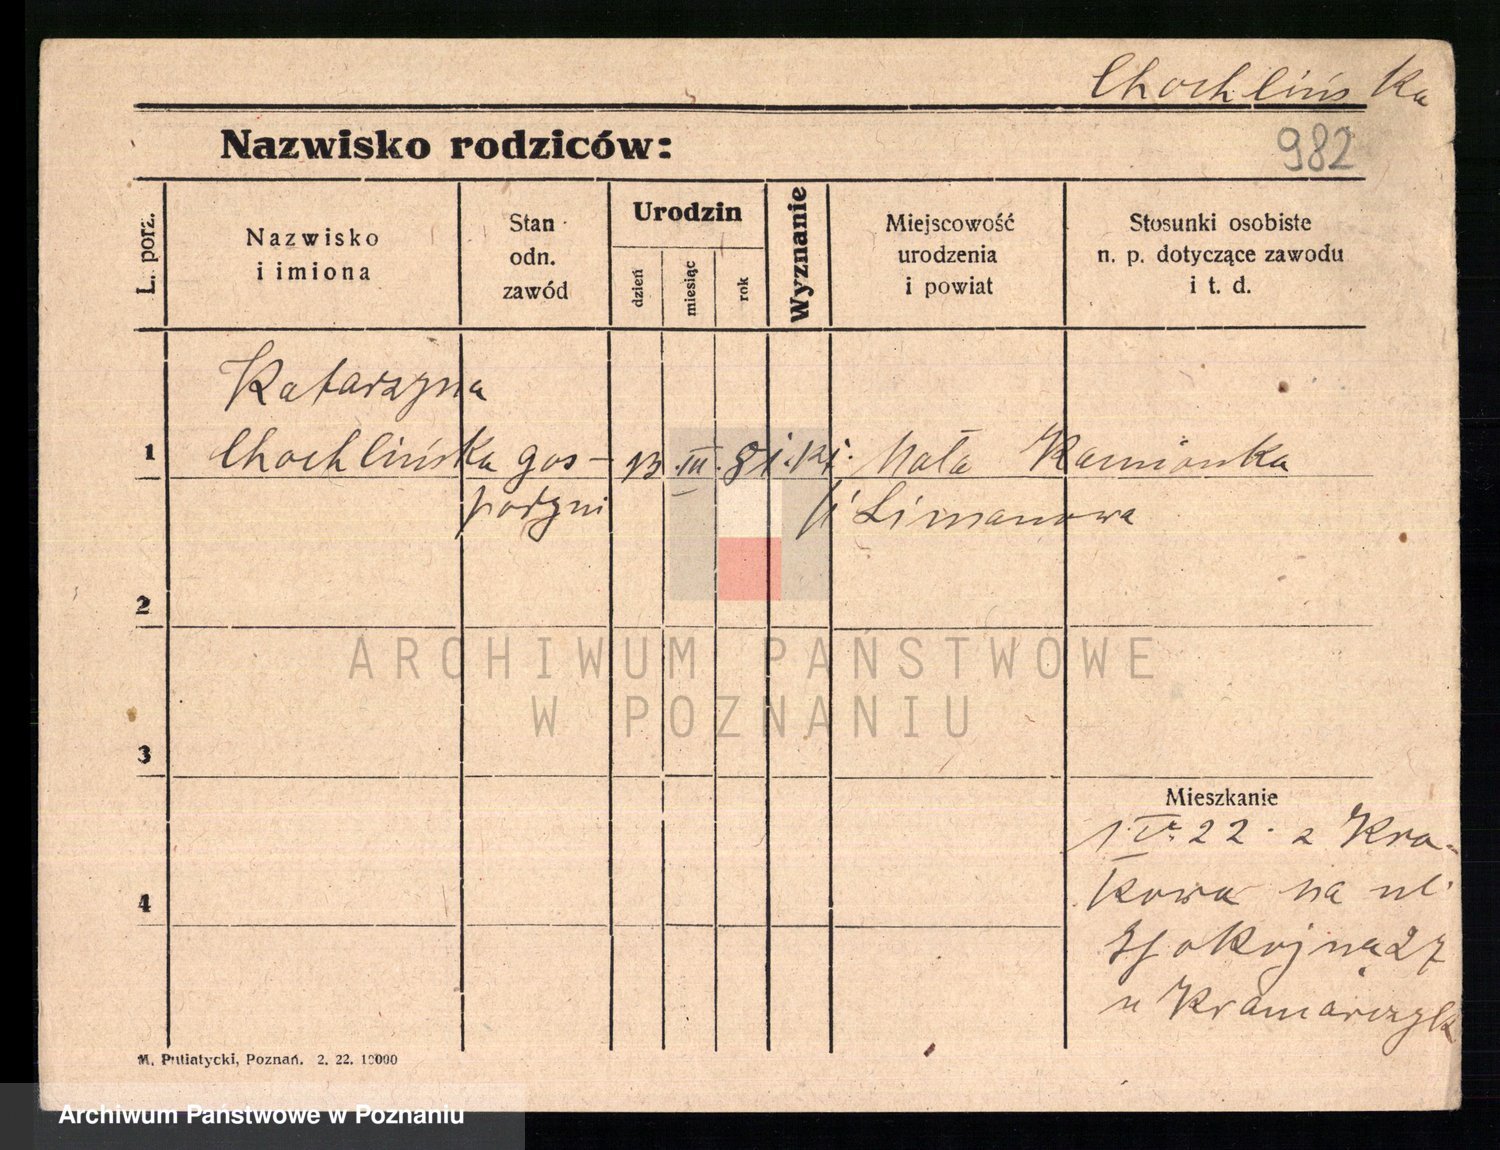 Chochlińska
982
Nazwisko rodziców:
L. porz.
Nazwisko
i imiona
Stan
odn.
zawód
Urodzin
dzień
miesiąc
rok
Wyznanie
Miejscowość
urodzenia
i powiat
Stosunki osobiste
n. p. dotyczące zawodu
i t. d.
Katarzyna
1 Chochlińska gos- 13. III. 81. kat. Mała Kamionka
podyni Limanowa
2
ARCHIWUM PAŃSTWOWE
W POZNANIU
3
Mieszkanie
22. z Kra-
4 kowa na ul.
Spokojną 27
u Kramarczyk
M. Putiatycki, Poznań. 2. 22. 10000
Archiwum Państwowe w Poznaniu